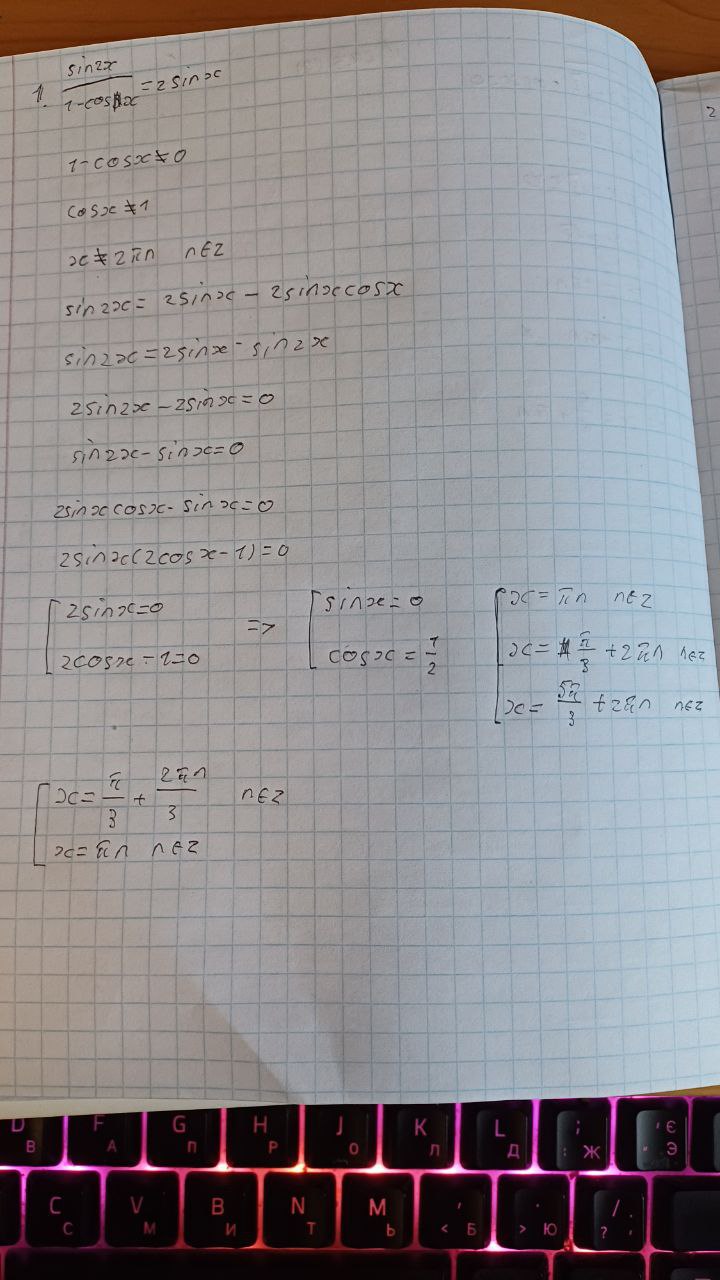 1. sin2x / 1-cosx = 2sinx
1-cosx≠0
cosx≠1
x≠2πn n∈Z
sin2x = 2sinx - 2sinxcosx
sin2x = 2sinx - sin2x
2sin2x - 2sinx = 0
sin2x - sinx = 0
2sinxcosx - sinx = 0
2sinx(2cosx-1) = 0
[ 2sinx=0
2cosx-1=0
=> [ sinx=0
cosx = 1/2
[ x = πn n∈Z
x = π/3 + 2πn n∈Z
x = 5π/3 + 2πn n∈Z
[ x = π/3 + 2πn/3 n∈Z
x = πn n∈Z
2
D В
F А
G П
H Р
J О
K Л
L Д
; : Ж
' " Є Э
C С
V М
B И
N Т
M Ь
, < Б
. > Ю
/ ? .